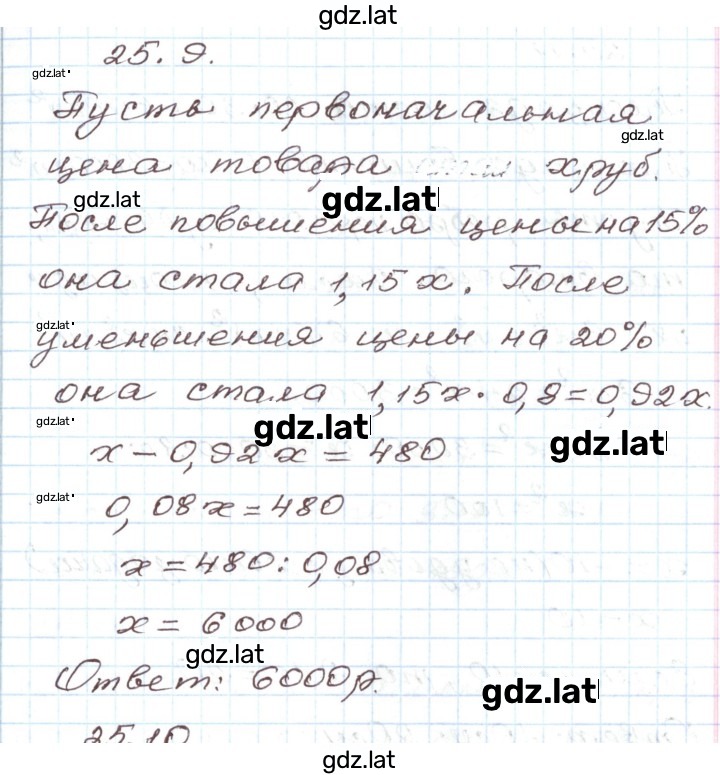 gdz.lat
25.9.
gdz.lat
Пусть первоначальная
gdz.lat
цена товара х руб.
gdz.lat
gdz.lat
После повышения цены на 15%
она стала 1,15 х. После
gdz.lat
уменьшения цены на 20%
она стала 1,15х · 0,8 = 0,92х.
gdz.lat
gdz.lat
gdz.lat
х - 0,92х = 480
gdz.lat
0,08х = 480
х = 480 : 0,08
х = 6000
gdz.lat
Ответ: 6000р.
gdz.lat
25.10
gdz.lat